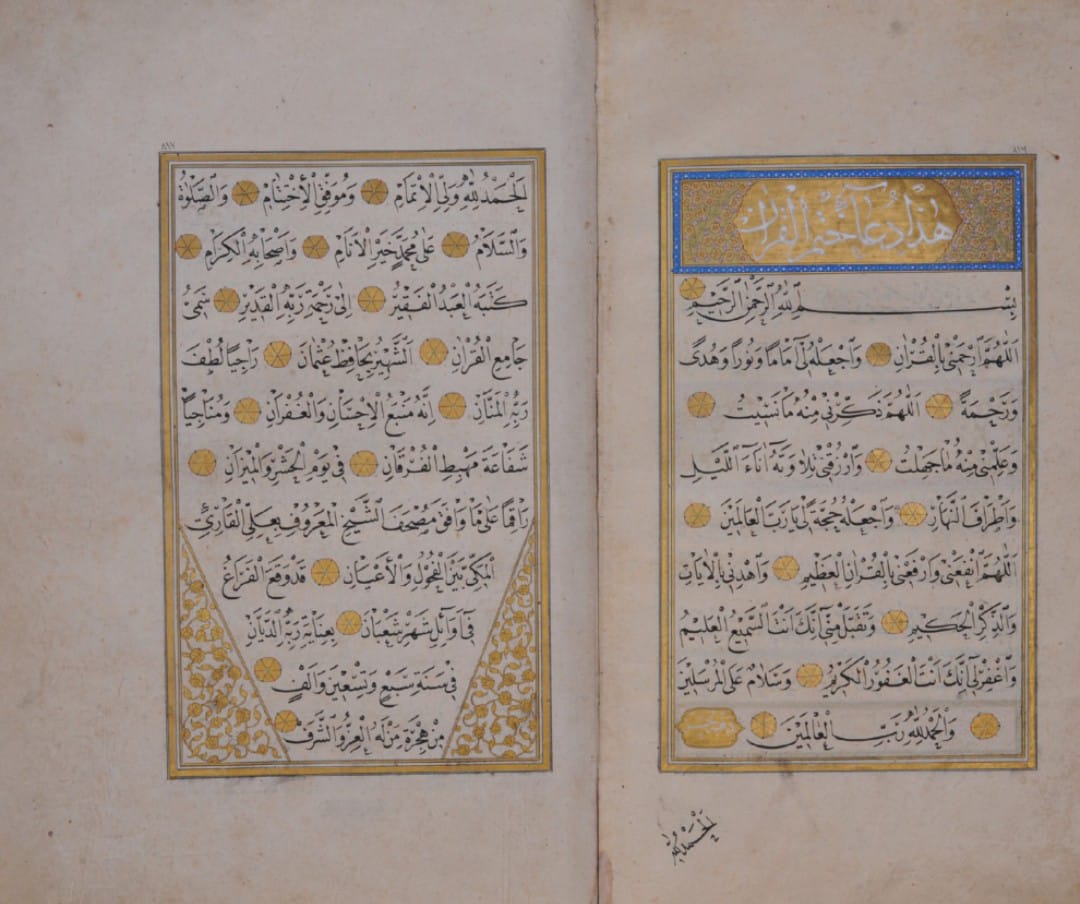 هٰذَا دُعَآءُ خَتْمِ الْقُرْاٰنِ
بِسْمِ اللّٰهِ الرَّحْمٰنِ الرَّحِيمِ
اَللّٰهُمَّ ارْحَمْنِى بِالْقُرْاٰنِ وَاجْعَلْهُ لِى اِمَامًا وَنُورًا وَهُدًى
وَرَحْمَةً اَللّٰهُمَّ ذَكِّرْنِى مِنْهُ مَا نَسِيتُ
وَعَلِّمْنِى مِنْهُ مَا جَهِلْتُ وَارْزُقْنِى تِلَاوَتَهُ اٰنَآءَ اللَّيْلِ
وَاَطْرَافَ النَّهَارِ وَاجْعَلْهُ حُجَّةً لِى يَا رَبَّ الْعَالَمِينَ
اَللّٰهُمَّ انْفَعْنِى وَارْفَعْنِى بِالْقُرْاٰنِ الْعَظِيمِ وَاهْدِنِى بِالْاٰيَاتِ
وَالذِّكْرِ الْحَكِيمِ وَتَقَبَّلْ مِنِّى اِنَّكَ اَنْتَ السَّمِيعُ الْعَلِيمُ
وَاغْفِرْ لِى اِنَّكَ اَنْتَ الْغَفُورُ الْكَرِيمُ وَسَلَامٌ عَلَى الْمُرْسَلِينَ
وَالْحَمْدُ لِلّٰهِ رَبِّ الْعَالَمِينَ
اَلْحَمْدُ لِلّٰهِ وَلِىِّ
اَلْحَمْدُ لِلّٰهِ وَلِىِّ الْاِتْمَامِ وَمُوَفِّقِ الْاِخْتِتَامِ وَالصَّلٰوةُ
وَالسَّلَامُ عَلٰى مُحَمَّدٍ خَيْرِ الْاَنَامِ وَاَصْحَابِهِ الْكِرَامِ
كَتَبَهُ الْعَبْدُ الْفَقِيرُ اِلٰى رَحْمَةِ رَبِّهِ الْقَدِيرِ سَمِىُّ
جَامِعِ الْقُرْاٰنِ الشَّهِيرُ بِحَافِظْ عُثْمَانَ رَاجِيًا لُطْفَ
رَبِّهِ الْمَنَّانِ اِنَّهُ مَنْبَعُ الْاِحْسَانِ وَالْغُفْرَانِ وَمُنَاجِيًا
شَفَاعَةَ مَهْبِطِ الْفُرْقَانِ فِى يَوْمِ الْحَشْرِ وَالْمِيزَانِ
رَاقِمًا عَلٰى مَا وَافَقَ مُصْحَفَ الشَّيْخِ الْمَعْرُوفِ بِعَلِىِّ الْقَارِئِ
الْمَكِّىِّ بَيْنَ الْفُحُولِ وَالْاَعْيَانِ قَدْ وَقَعَ الْفَرَاغُ
فِى اَوَائِلِ شَهْرِ شَعْبَانَ بِعِنَايَةِ رَبِّهِ الدَّيَّانِ
فِى سَنَةِ سَبْعٍ وَتِسْعِينَ وَاَلْفٍ
مِنْ هِجْرَةِ مَنْ لَهُ الْعِزُّ وَالشَّرَفُ